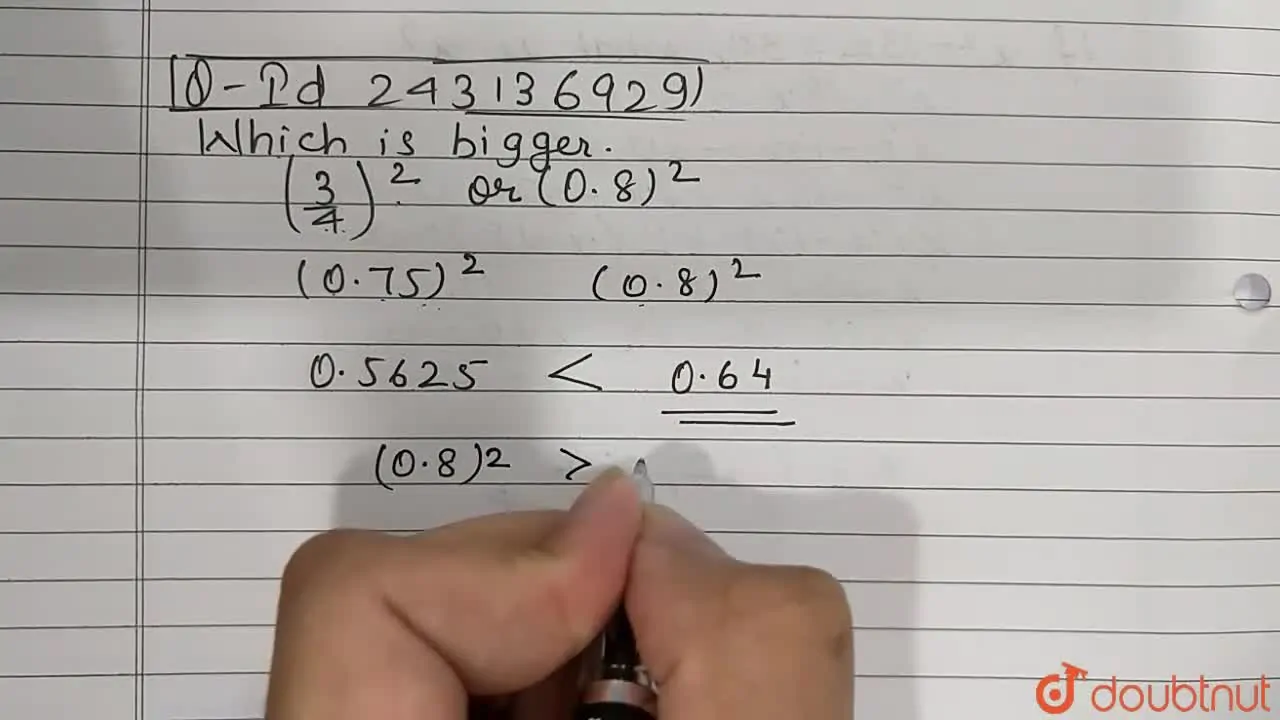 Q-Id 243136929)
Which is bigger.
(3/4)² or (0.8)²
(0.75)² (0.8)²
0.5625 < 0.64
(0.8)² >
doubtnut